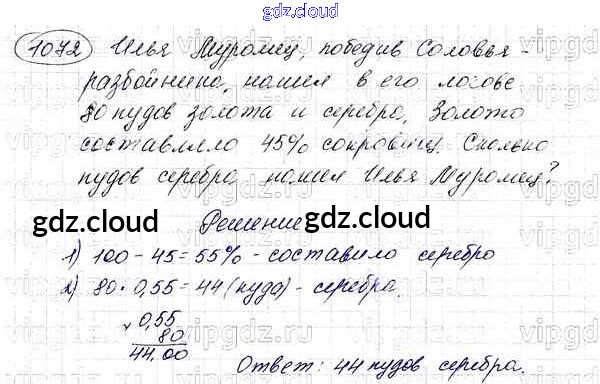 gdz.cloud
1072 Илья Муромец, победив Соловья-
разбойника, нашел в его логове
80 пудов золота и серебра. Золото
составляло 45% сокровищ. Сколько
пудов серебра нашел Илья Муромец?
gdz.cloud gdz.cloud
Решение
1) 100 - 45 = 55% - составило серебро
2) 80 · 0,55 = 44 (пуда) - серебра.
× 0,55
80
44,00
Ответ: 44 пудов серебра.
gdz.cloud